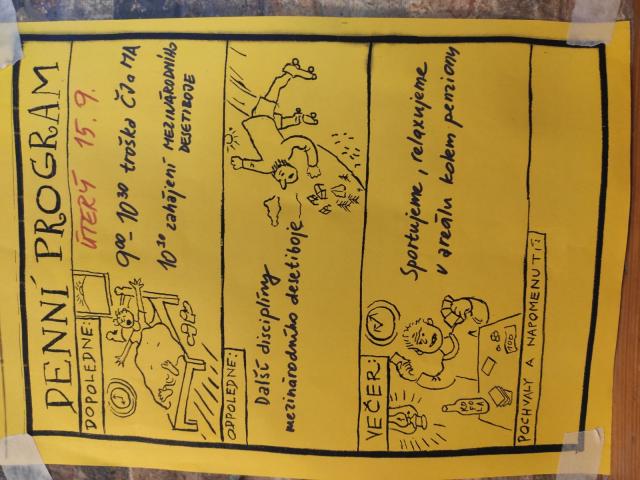 DENNÍ PROGRAM
DOPOLEDNE:
ÚTERÝ 15.9.
9⁰⁰ - 10³⁰ troška ČJ a MA
10³⁰ zahájení MEZINÁRODNÍHO
DESETIBOJE
ODPOLEDNE:
Další disciplíny
mezinárodního desetiboje
VEČER:
Sportujeme, relaxujeme
v areálu kolem penzionu
KO
FO
LA
100
POCHVALY A NAPOMENUTÍ